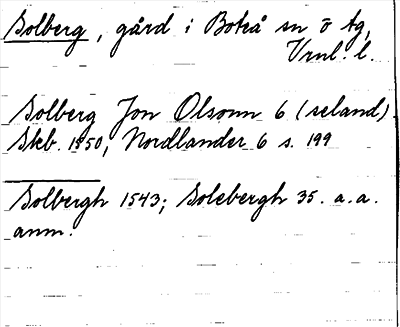 Solberg, gård i Boteå sn ö tg,
Vrnl. l.
Solberg Jon Olsonn 6 (seland).
Skb. 1550, Nordlander 6 s. 199
Solbergh 1543; Solebergh 35. a.a.
anm.